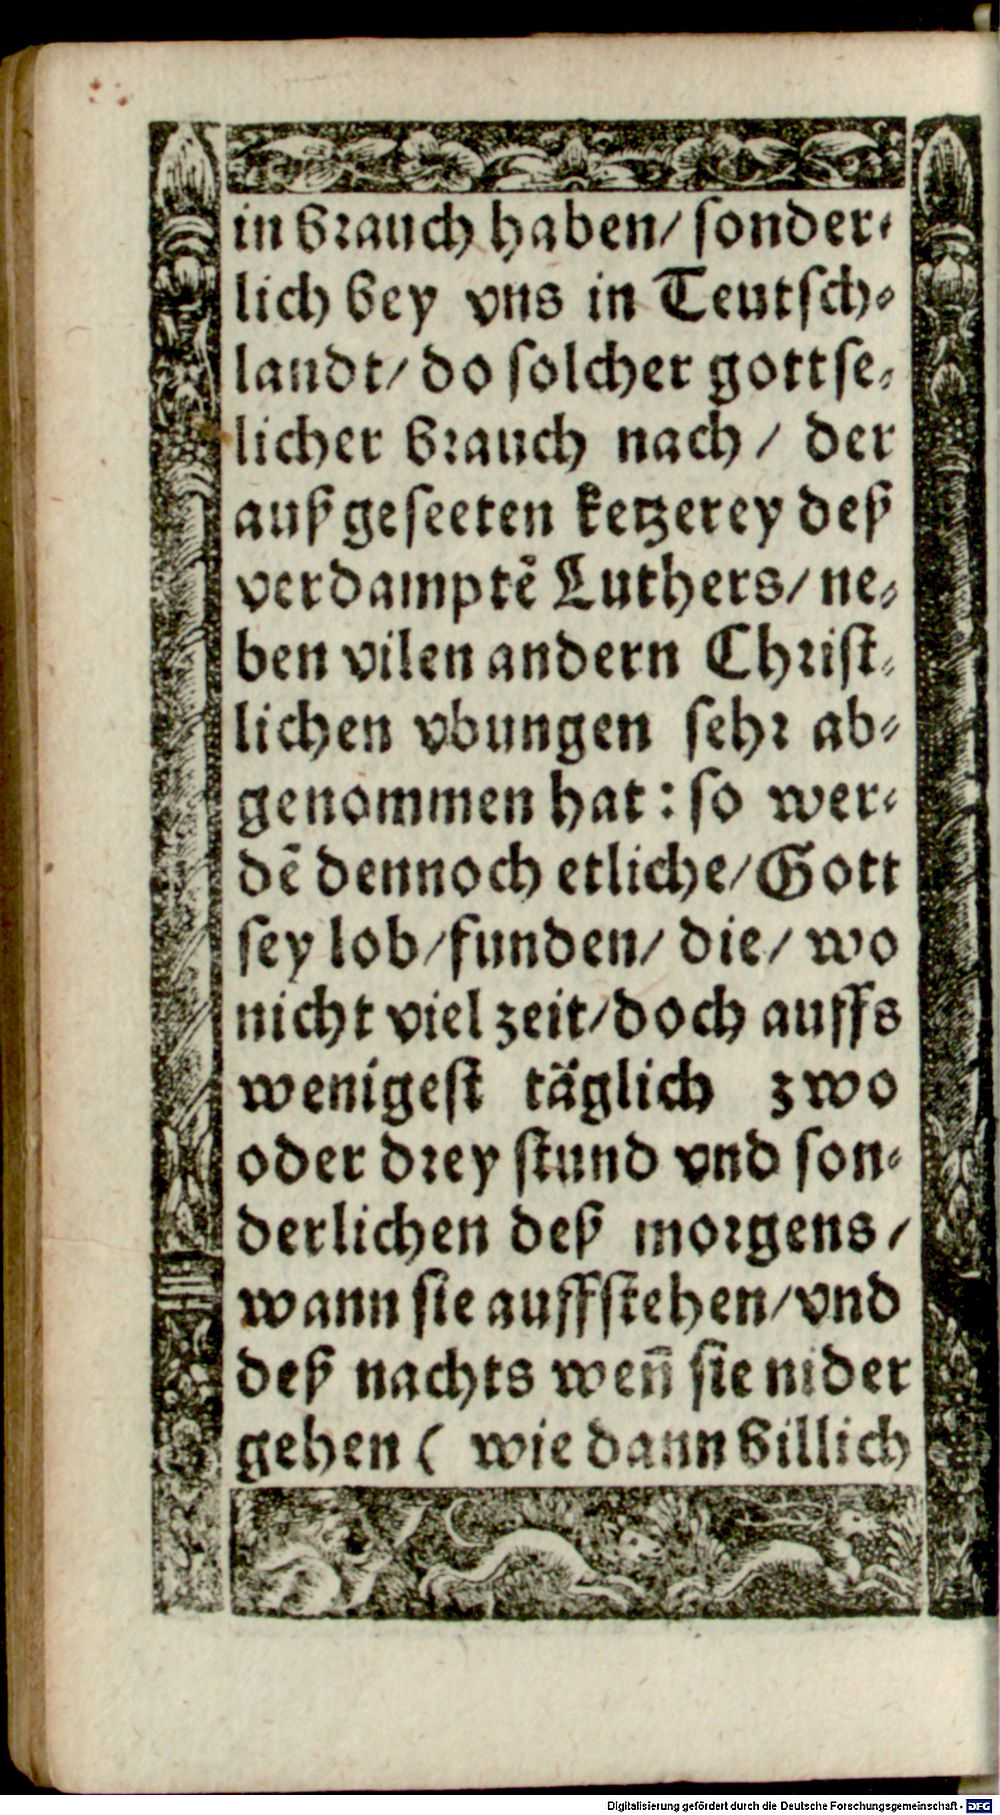 in brauch haben/ sonder⸗
lich bey vns in Teutsch⸗
landt/ do solcher gottse⸗
licher brauch nach/ der
außgeseeten ketzerey deß
verdamptē Luthers/ ne⸗
ben vilen andern Christ⸗
lichen vbungen sehr ab⸗
genommen hat: so wer⸗
dē dennoch etliche/ Gott
sey lob/ funden/ die/ wo
nicht viel zeit/ doch auffs
wenigest täglich zwo
oder drey stund vnd son⸗
derlichen deß morgens/
wann sie auffstehen/ vnd
deß nachts weñ sie nider
gehen ( wie dann billich
Digitalisierung gefördert durch die Deutsche Forschungsgemeinschaft - DFG